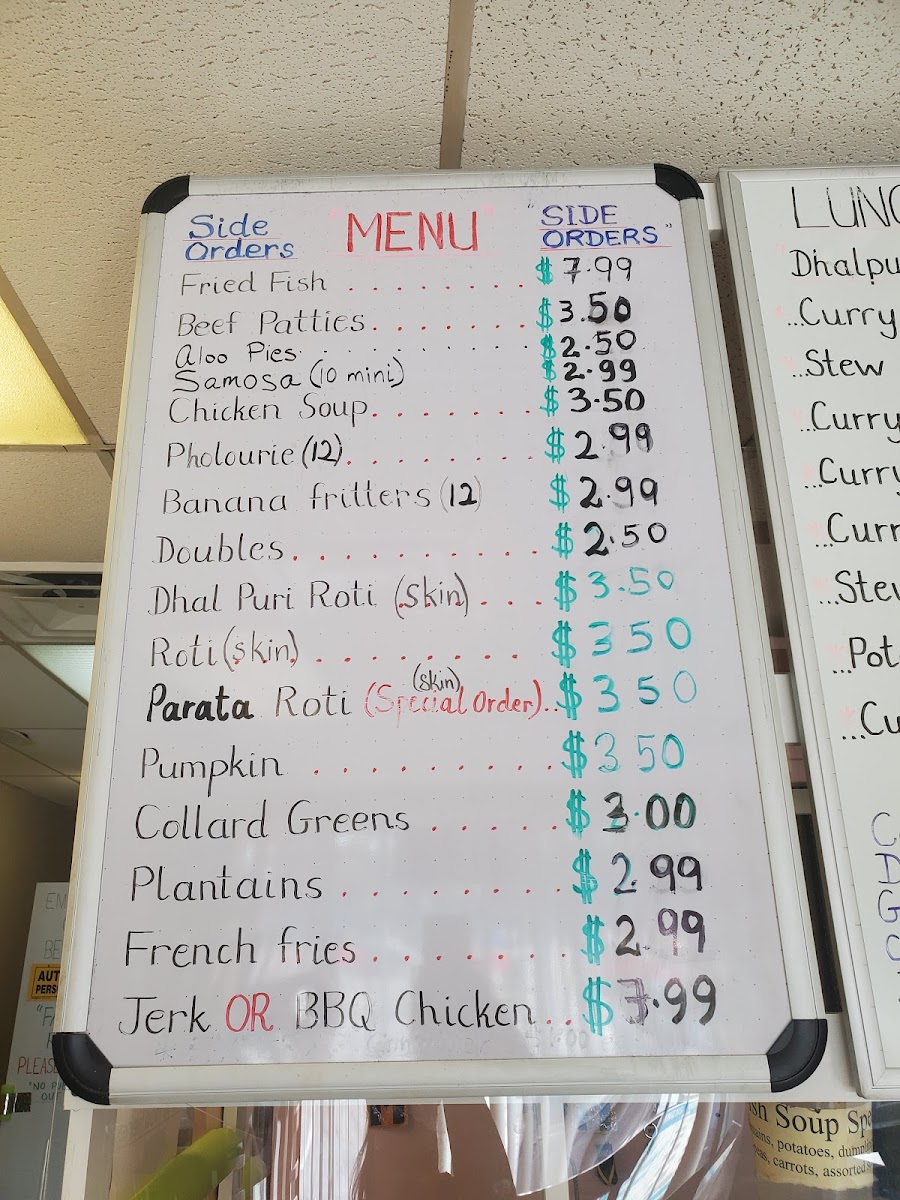 Side Orders "MENU" "SIDE ORDERS"
Fried Fish . . . . . . . . $ 7.99
Beef Patties. . . . . . . $ 3.50
Aloo Pies. . . . . . . . . $ 2.50
Samosa (10 mini) $ 2.99
Chicken Soup. . . . . . . $ 3.50
Pholourie (12). . . . . . . . $ 2.99
Banana fritters (12) $ 2.99
Doubles. . . . . . . . . . $ 2.50
Dhal Puri Roti (skin) . . . $ 3.50
Roti (skin) . . . . . . . . $ 3 50
(skin)
Parata Roti (Special Order). . $ 3 50
Pumpkin . . . . . . . . . $ 3 50
Collard Greens . . . . . $ 3.00
Plantains . . . . . . . . . $ 2.99
French fries . . . . . . . $ 2.99
Jerk OR BBQ Chicken . . $ 7.99
Dhalpu
...Curry
...Stew
...Curry
...Curry
...Curr
...Stew
...Pot
...Cu
AUT
PERS
PLEASE
sh Soup Spe
potatoes, dumpl
carrots, assorted